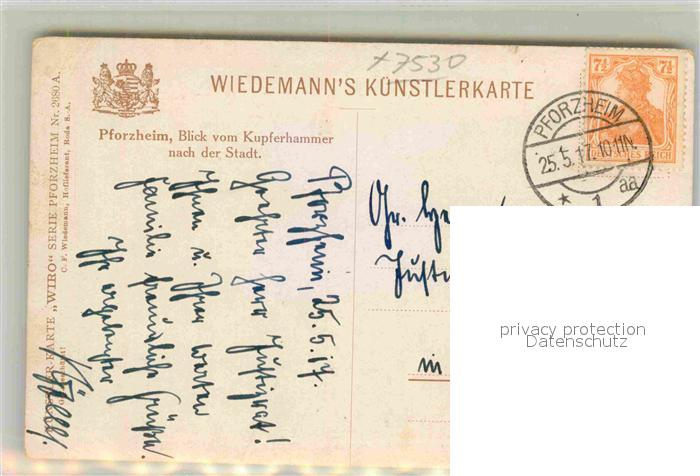 +7530
WIEDEMANN'S KÜNSTLERKARTE
Pforzheim, Blick vom Kupferhammer
nach der Stadt.
KÜNSTLER-KARTE „WIRO“ SERIE PFORZHEIM Nr. 2080 A.
C. F. Wiedemann, Hoflieferant, Roda S.-A.
7½ 7½
DEUTSCHES REICH
PFORZHEIM
25.5.17. 10-11N.
* 1 aa
Pforzheim, 25.5.17.
Geehrter Herr Justizrat!
Ihnen u. Ihrer werten
Familie freundliche Grüße.
Ihr ergebenster
Hr.
Justi
in
privacy protection
Datenschutz